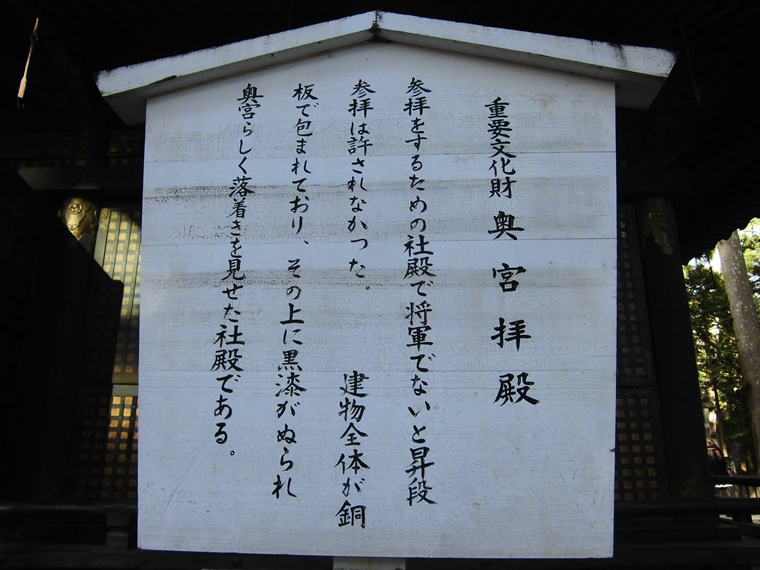 重要文化財 奥宮拝殿
参拝をするための社殿で将軍でないと昇段
参拝は許されなかった。 建物全体が銅
板で包まれており、その上に黒漆がぬられ
奥宮らしく落着きを見せた社殿である。